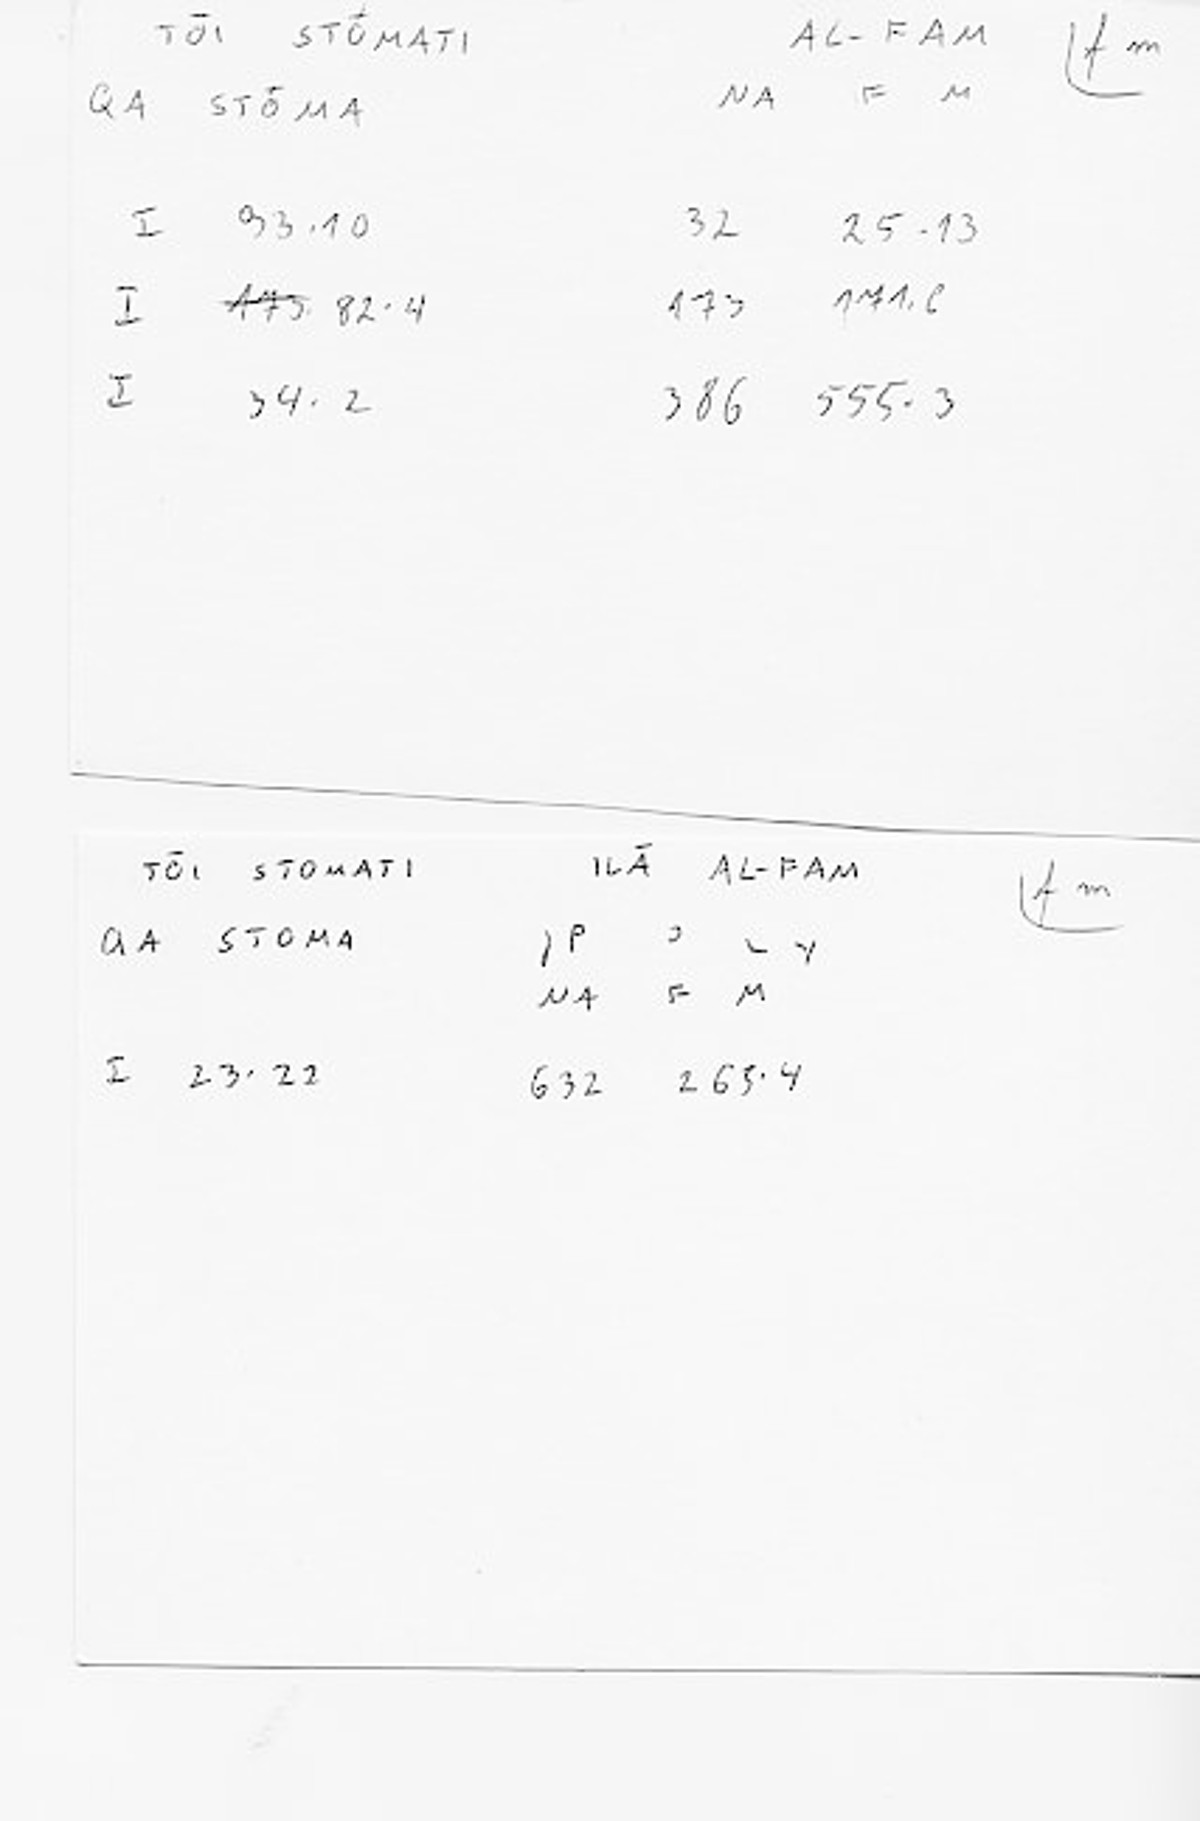 TŌI STŌMATI AL-FAM f m
QA STŌMA NA F M
I 93.10 32 25.13
I 175. 82.4 173 171.6
I 34.2 386 555.3
TŌI STOMATI ILĀ AL-FAM f m
QA STOMA
NA F M
I 23.22 632 265.4